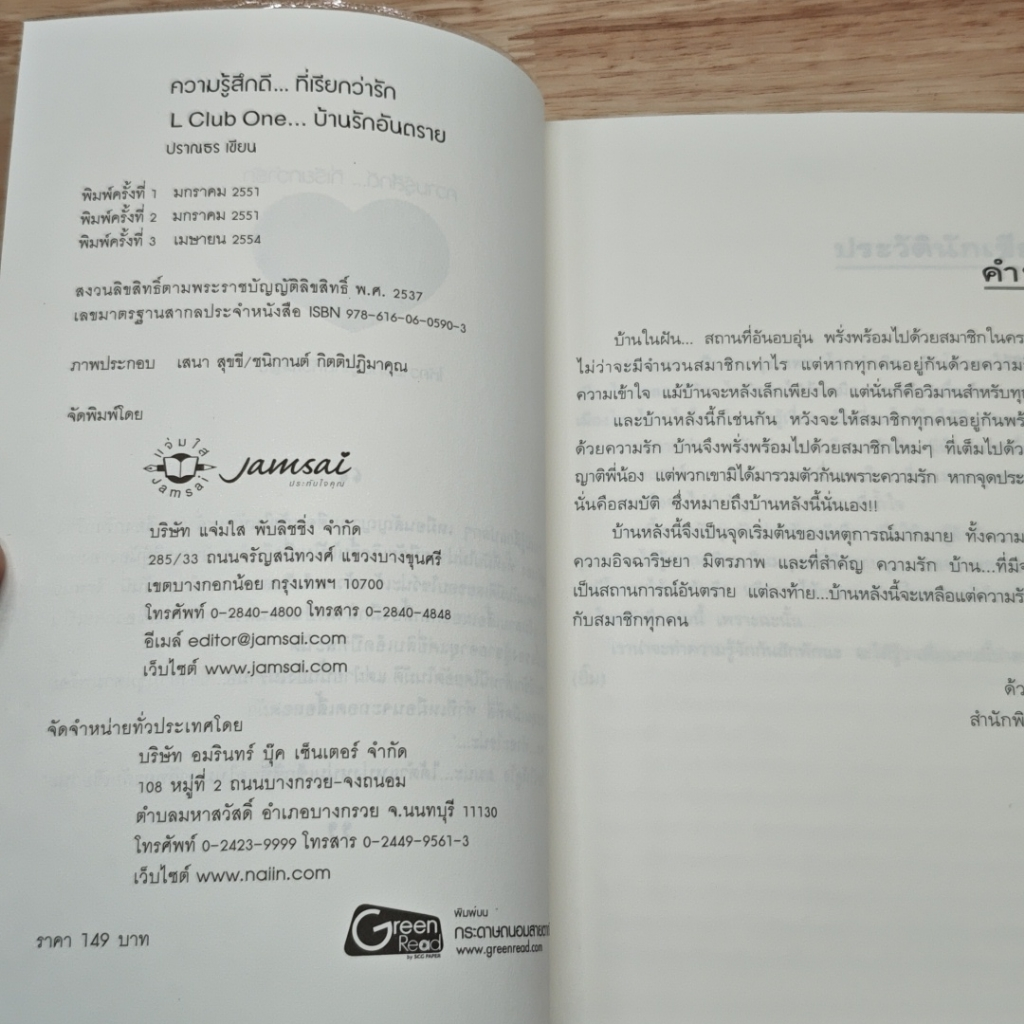 ความรู้สึกดี... ที่เรียกว่ารัก
L Club One... บ้านรักอันตราย
ปราณธร เขียน
พิมพ์ครั้งที่ 1 มกราคม 2551
พิมพ์ครั้งที่ 2 มกราคม 2551
พิมพ์ครั้งที่ 3 เมษายน 2554
สงวนลิขสิทธิ์ตามพระราชบัญญัติลิขสิทธิ์ พ.ศ. 2537
เลขมาตรฐานสากลประจำหนังสือ ISBN 978-616-06-0590-3
ภาพประกอบ เสนา สุขขี/ชนิกานต์ กิตติปฏิมาคุณ
จัดพิมพ์โดย
แจ่มใส
Jamsai
Jamsai
ประทับใจคุณ
บริษัท แจ่มใส พับลิชชิ่ง จำกัด
285/33 ถนนจรัญสนิทวงศ์ แขวงบางขุนศรี
เขตบางกอกน้อย กรุงเทพฯ 10700
โทรศัพท์ 0-2840-4800 โทรสาร 0-2840-4848
อีเมล์ editor@jamsai.com
เว็บไซต์ www.jamsai.com
จัดจำหน่ายทั่วประเทศโดย
บริษัท อมรินทร์ บุ๊ค เซ็นเตอร์ จำกัด
108 หมู่ที่ 2 ถนนบางกรวย-จงถนอม
ตำบลมหาสวัสดิ์ อำเภอบางกรวย จ.นนทบุรี 11130
โทรศัพท์ 0-2423-9999 โทรสาร 0-2449-9561-3
เว็บไซต์ www.naiin.com
ราคา 149 บาท
Green Read
by SCG PAPER
พิมพ์บน
กระดาษถนอมสายตา
www.greenread.com
บ้านในฝัน... สถานที่อันอบอุ่น พรั่งพร้อมไปด้วยสมาชิกในคร
ไม่ว่าจะมีจำนวนสมาชิกเท่าไร แต่หากทุกคนอยู่กันด้วยความ
ความเข้าใจ แม้บ้านจะหลังเล็กเพียงใด แต่นั่นก็คือวิมานสำหรับทุ
และบ้านหลังนี้ก็เช่นกัน หวังจะให้สมาชิกทุกคนอยู่กันพร้
ด้วยความรัก บ้านจึงพรั่งพร้อมไปด้วยสมาชิกใหม่ๆ ที่เต็มไปด้ว
ญาติพี่น้อง แต่พวกเขามิได้มารวมตัวกันเพราะความรัก หากจุดประ
นั่นคือสมบัติ ซึ่งหมายถึงบ้านหลังนี้นั่นเอง!!
บ้านหลังนี้จึงเป็นจุดเริ่มต้นของเหตุการณ์มากมาย ทั้งความ
ความอิจฉาริษยา มิตรภาพ และที่สำคัญ ความรัก บ้าน...ที่มีจ
เป็นสถานการณ์อันตราย แต่ลงท้าย...บ้านหลังนี้จะเหลือแต่ความรั
กับสมาชิกทุกคน
ด้ว
สำนักพิ